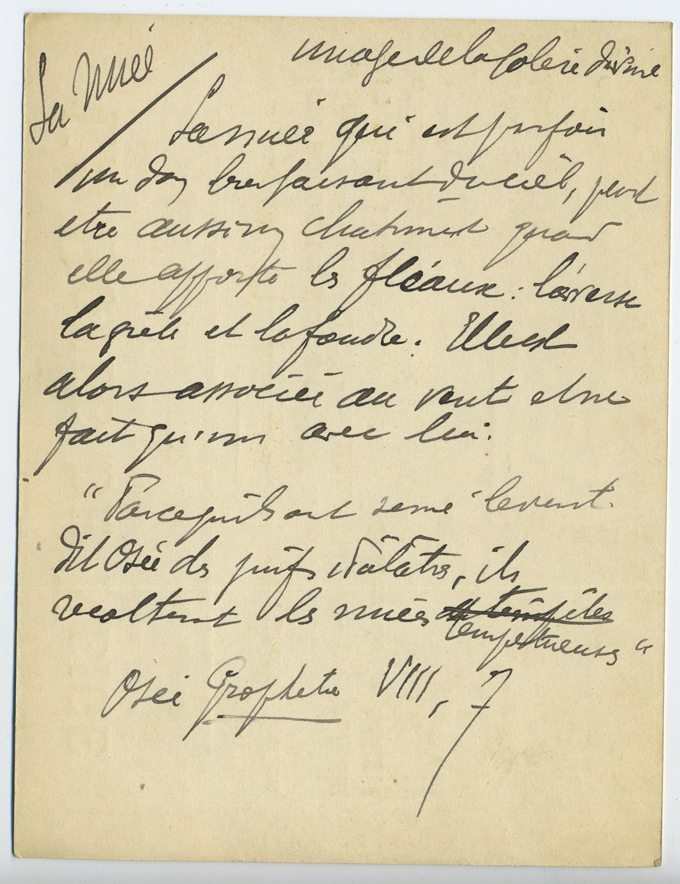 La Nuée
image de la colère divine
La nuée qui est parfois
un don bienfaisant du ciel, peut
etre aussi un chatiment quand
elle apporte les fléaux : l'averse
la grêle et la foudre. Elle est
alors associée au vent et ne
fait qu'un avec lui.
"Parcequ'ils ont semé le vent.
dit Osée des juifs idolâtres, ils
recoltent les nuées et tempêtes
tempetueuses"
Osée Prophetie VIII, 7